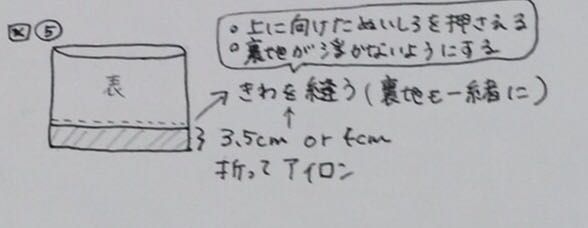 図⑤
・上に向けたぬいしろを押さえる
・裏地が浮かないようにする
表
きわを縫う(裏地も一緒に)
3.5cm or 4cm
折ってアイロン